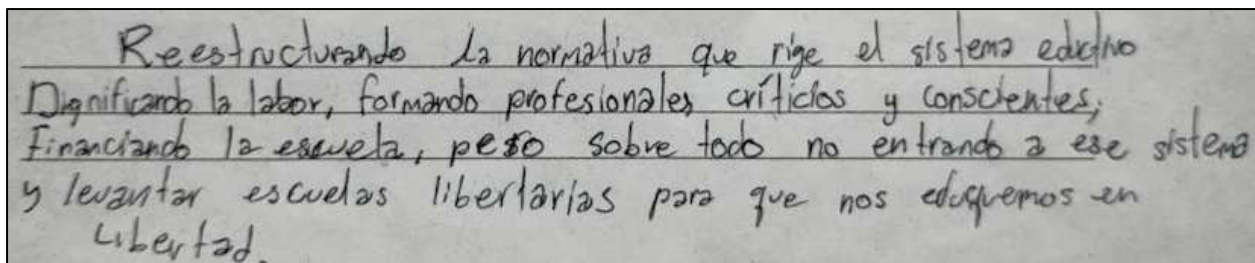 Reestructurando la normativa que rige el sistema eductivo
Dignificando la labor, formando profesionales críticios y conscientes,
financiando la escuela, pero sobre todo no entrando a ese sistema
y levantar escuelas libertarias para que nos eduquemos en
Libertad.